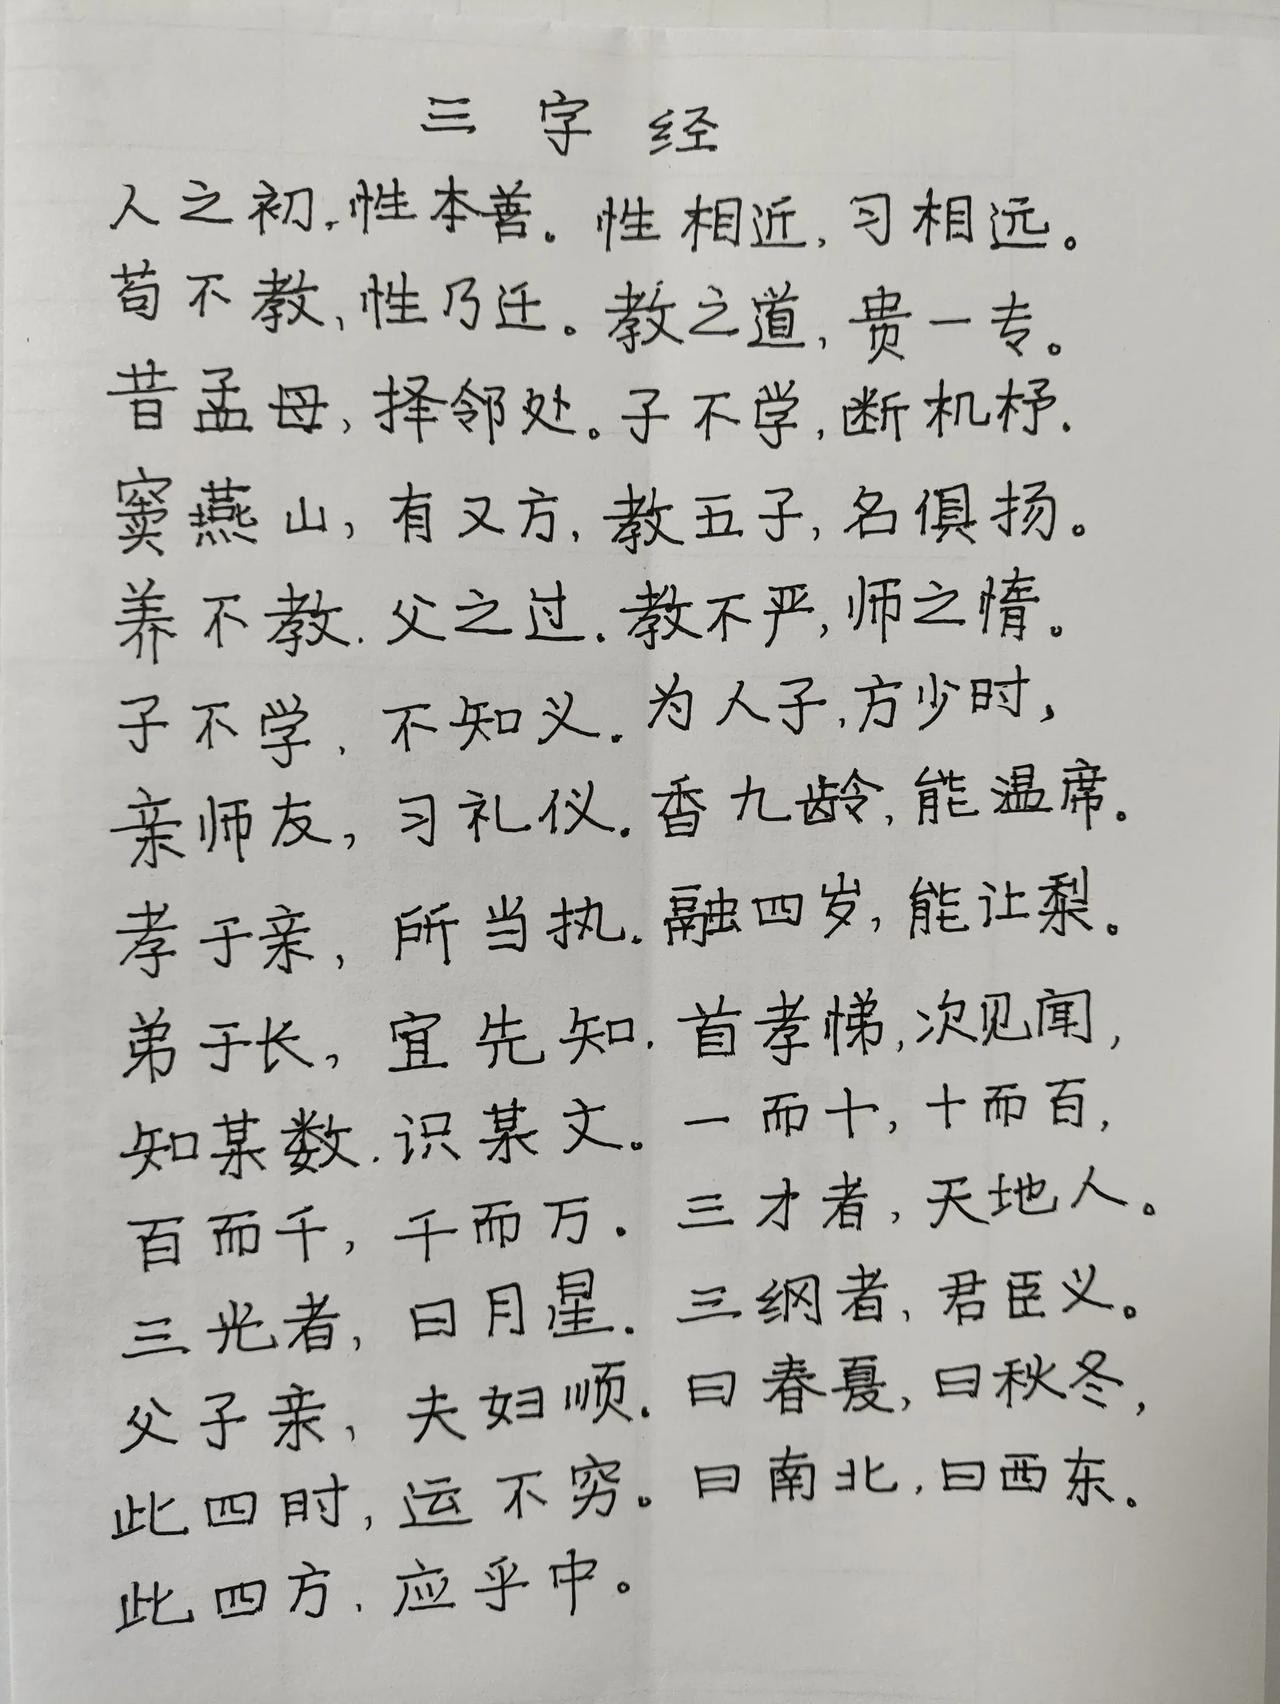 三字经
人之初,性本善。性相近,习相远。
苟不教,性乃迁。教之道,贵一专。
昔孟母,择邻处。子不学,断机杼.
窦燕山,有又方,教五子,名俱扬。
养不教.父之过.教不严,师之惰。
子不学,不知义.为人子,方少时,
亲师友,习礼仪.香九龄,能温席.
孝于亲,所当执.融四岁,能让梨。
弟于长,宜先知.首孝悌,次见闻,
知某数.识某文。一而十,十而百,
百而千,千而万.三才者,天地人。
三光者,日月星.三纲者,君臣义。
父子亲,夫妇顺.曰春夏,曰秋冬,
此四时,运不穷。曰南北,曰西东。
此四方,应乎中。